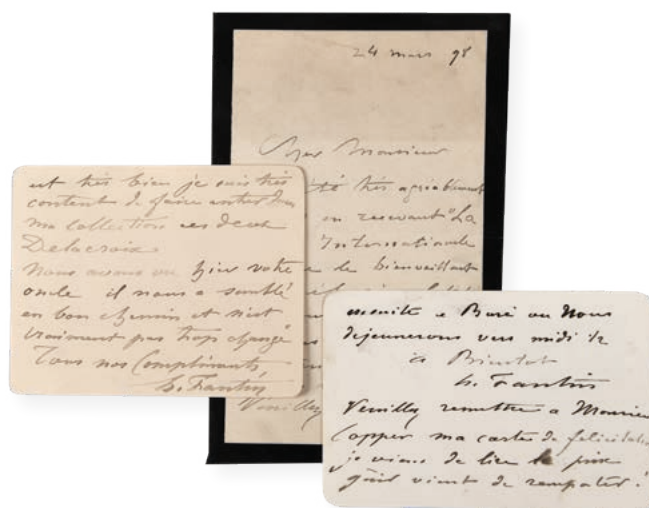 24 mars 98
Cher Monsieur
été très agréablement
en recevant "La
Internationale
de bienveillant
Veuillez
est très bien je suis très
content de faire entrer dans
ma collection ces deux
Delacroix.
Nous avons vu hier votre
oncle il nous a semblé
en bon chemin et n'est
vraiment pas trop changé
Tous nos Compliments
h. Fantin
ensuite a Buré ou Nous
dejeunerons vers midi ½
a Bientot
h. Fantin
Veuillez remettre a Monsieur
Copper ma carte de felicitation
je viens de lire le prix
qu'il vient de remporter!